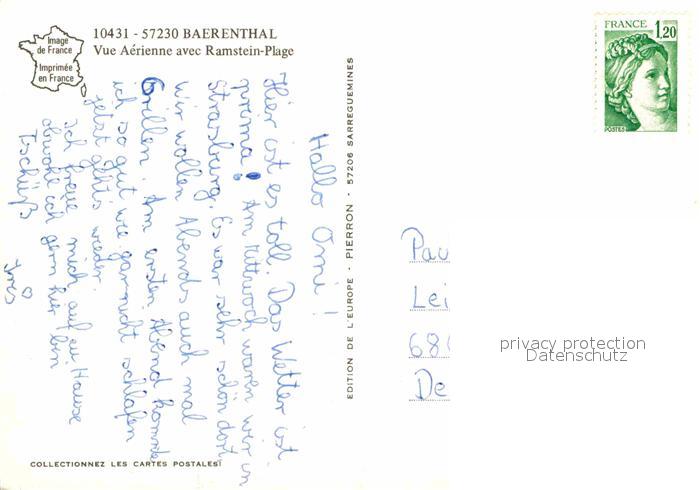 Image
de France
Imprimée
en France
10431 - 57230 BAERENTHAL
Vue Aérienne avec Ramstein-Plage
FRANCE
1,20
POSTES
Hallo Omi!
Hier ist es toll. Das Wetter ist
prima! Am Mittwoch waren wir in
Strasburg. Es war sehr schön dort
wir wollen Abends auch mal
Grillen. Am ersten Abend konnte
ich so gut wie garnicht schlafen
jetzt geht's wieder.
Ich freue mich auf zu Hause
obwohl ich gern hier bin
Tschüß
EDITION DE L'EUROPE - PIERRON - 57206 SARREGUEMINES
Pau
Lei
68
De
privacy protection
Datenschutz
COLLECTIONNEZ LES CARTES POSTALES!